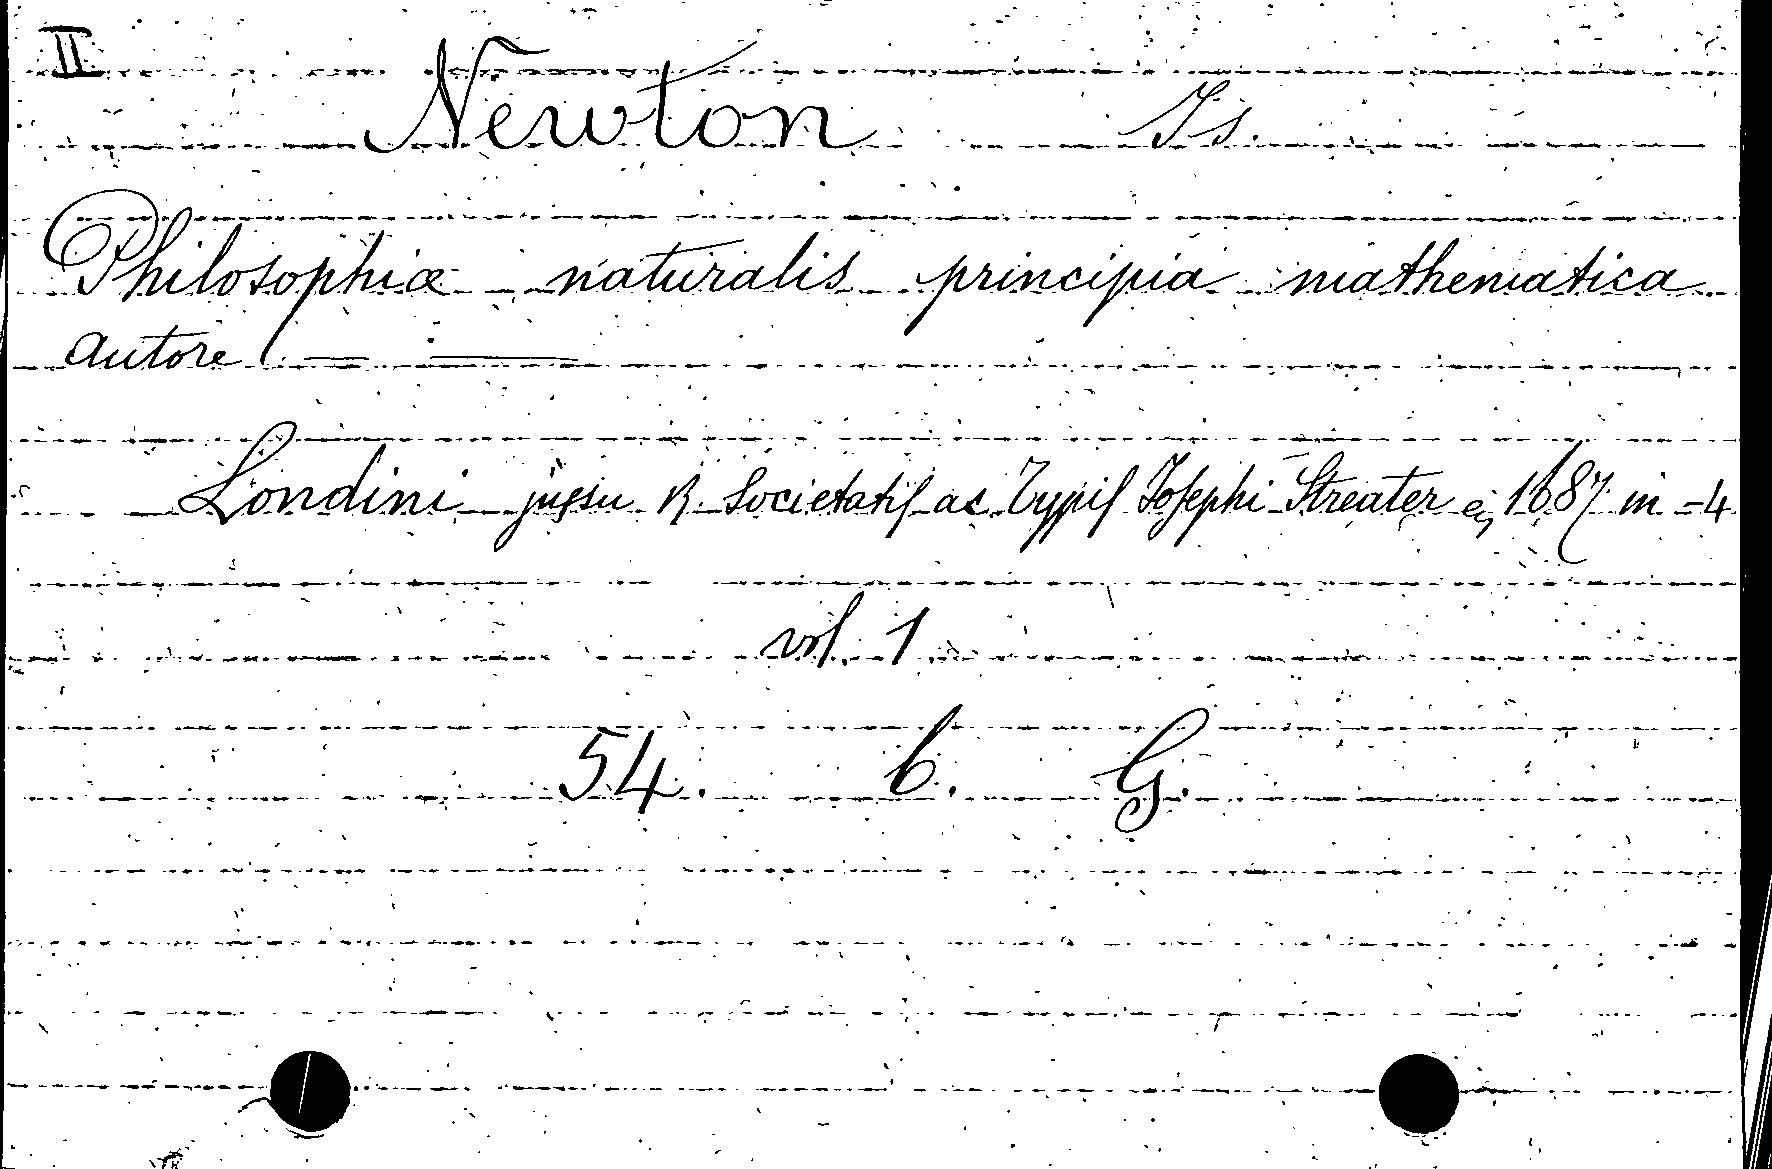 II
Newton Is.
Philosophiæ naturalis principia mathematica
autore — —
Londini jussu R. Societatis ac Typis Josephi Streater 1687 in-4
vol. 1
54. 6. G.